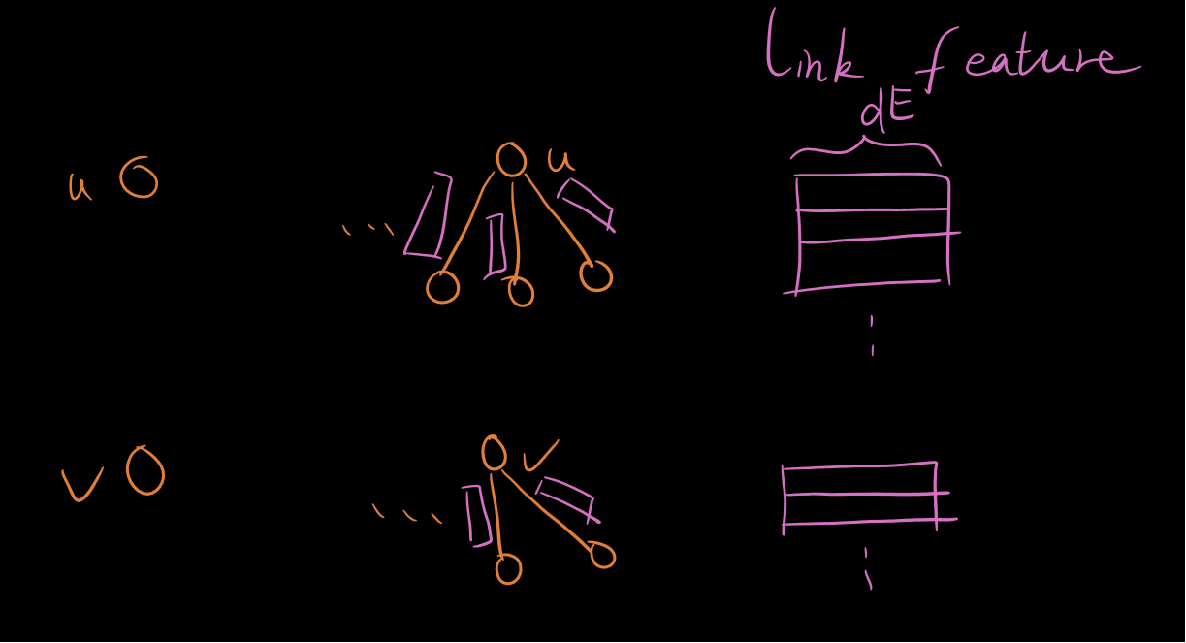 link feature
dE
u
u
...
v
v
...